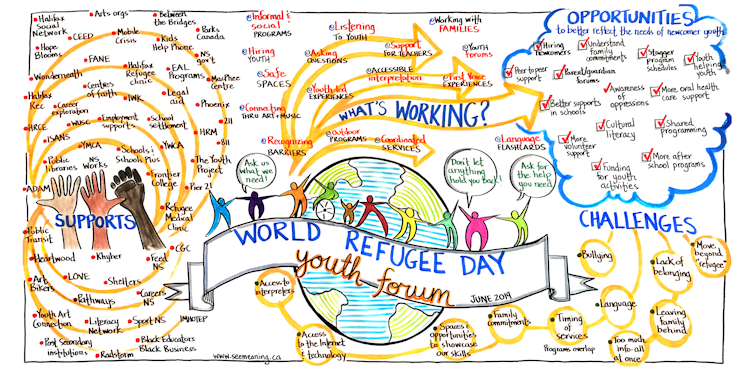 Halifax
Social
Network
Arts orgs
Between
the Bridges
CEED
Mobile
Crisis
Parks
Canada
Hope
Blooms
Kids
Help Phone
NS
gov't
FANE
Halifax
Refugee
clinic
EAL
Programs
Wonderneath
MacPhee
Centre
Centres
of faith
Legal
aid
Halifax
Rec
Career
exploration
IWK
Phoenix
HRCE
WUSC
Employment
supports
School
settlement
211
ISANS
HRM
YMCA
Schools +
Schools Plus
YWCA
811
Public
libraries
NS
Works
The Youth
Project
Frontier
College
ADAM
Pier 21
SUPPORTS
Refugee
Medical
Clinic
Public
Transit
CGC
Heartwood
Khyber
Feed
NS
Art
Bikers
LOVE
Shelters
Pathways
Careers
NS
Youth Art
Connection
Literacy
Network
Sport NS
IMPACTEP
Post Secondary
institutions
Radstorm
Black Educators
Black Business
www.seemeaning.ca
Informal &
social
PROGRAMS
Listening
TO YOUTH
Working with
FAMILIES
Hiring
YOUTH
Asking
QUESTIONS
Support
FOR TEACHERS
Youth
forums
Safe
SPACES
ACCESSIBLE
interpretation
First Voice
EXPERIENCES
Youth-led
EXPERIENCES
Connecting
THRU ART + MUSIC
WHAT'S WORKING?
Recognizing
BARRIERS
Outdoor
PROGRAMS
Coordinated
SERVICES
Language
FLASHCARDS
Ask us
what we
need!
Don't let
anything
hold you back!
Ask for
the help
you need
WORLD REFUGEE DAY
youth forum
JUNE 2019
OPPORTUNITIES
to better reflect the needs of newcomer youth
Hiring
newcomers
Understand
family
commitments
Stagger
program
schedules
Youth
helping
youth
Peer to peer
support
Parent/guardian
forums
Awareness
of
oppressions
More oral health
care support
Better supports
in schools
Cultural
literacy
Shared
programming
More
volunteer
support
Funding
for youth
activities
More after
school programs
CHALLENGES
Bullying
Lack of
belonging
Move
beyond
"refugee"
Access to
interpreters
Language
Leaving
family
behind
Access
to the Internet
& technology
Spaces &
opportunities
to showcase
our skills
Family
commitments
Timing
of
services
Programs overlap
Too much
info all
at once